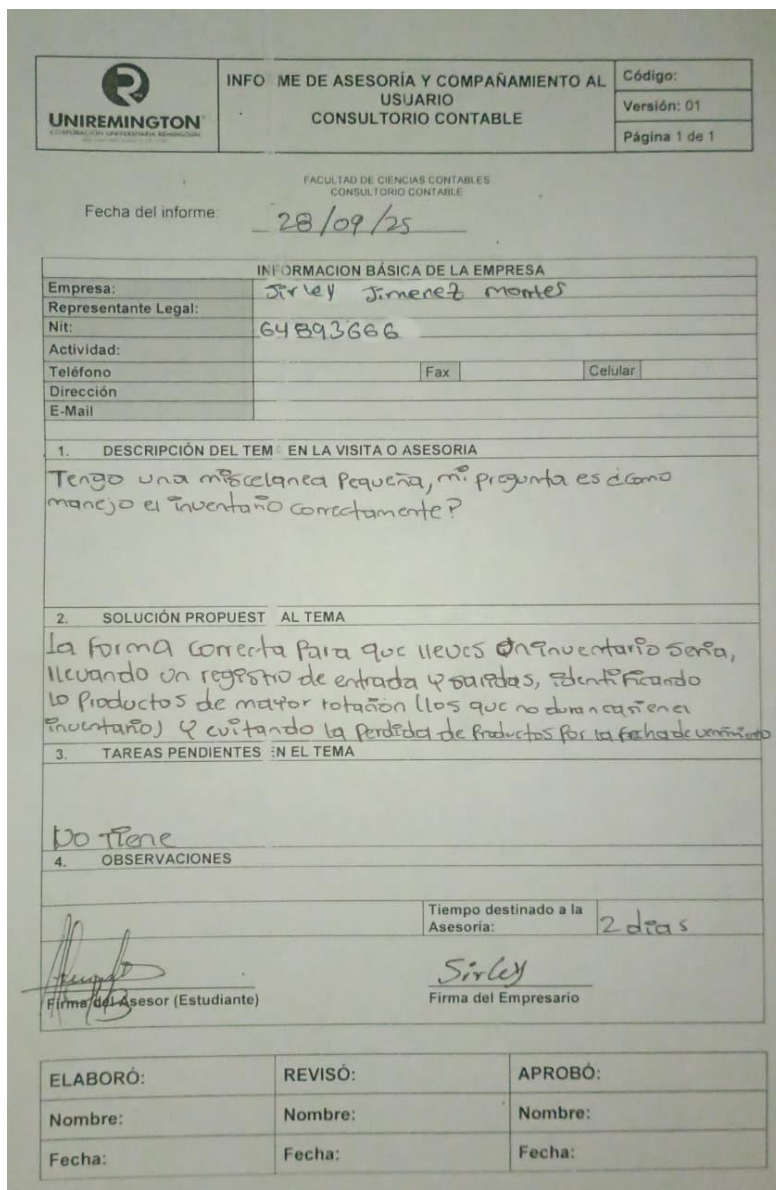 UNIREMINGTON
CORPORACIÓN UNIVERSITARIA REMINGTON
INFO ME DE ASESORÍA Y COMPAÑAMIENTO AL
USUARIO
CONSULTORIO CONTABLE
Código:
Versión: 01
Página 1 de 1
FACULTAD DE CIENCIAS CONTABLES
CONSULTORIO CONTABLE
Fecha del informe: 28/09/25
INFORMACION BÁSICA DE LA EMPRESA
Empresa: Sirley Jimenez Montes
Representante Legal:
Nit: 64893666
Actividad:
Teléfono Fax Celular
Dirección
E-Mail
1. DESCRIPCIÓN DEL TEM EN LA VISITA O ASESORIA
Tengo una miscelanea Pequeña, mi pregunta es ¿como
manejo el inventario correctamente?
2. SOLUCIÓN PROPUEST AL TEMA
La Forma correcta Para que lleves un inventario seria,
llevando un registro de entrada y salidas, identificando
lo Productos de mayor rotación (los que no duran casi en el
inventario) y evitando la Perdida de Productos Por la fecha de vencimiento
3. TAREAS PENDIENTES EN EL TEMA
No Tiene
4. OBSERVACIONES
Tiempo destinado a la
Asesoría: 2 dias
Sirley
Firma del Asesor (Estudiante) Firma del Empresario
ELABORÓ: REVISÓ: APROBÓ:
Nombre: Nombre: Nombre:
Fecha: Fecha: Fecha: